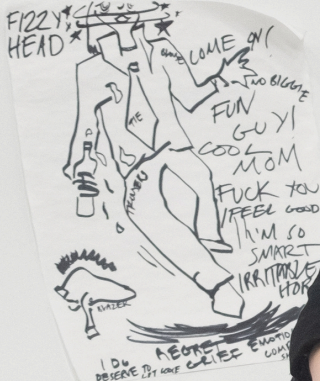 FIZZY
HEAD
COME ON!
NO BIGGIE
FUN
GUY!
COOL
MOM
TIE
FUCK YOU
I FEEL GOOD
I'M SO
SMART
IRRITABLE
TROUSERS
BLAZER
REGRET
GRIEF
I DO
DESERVE TO